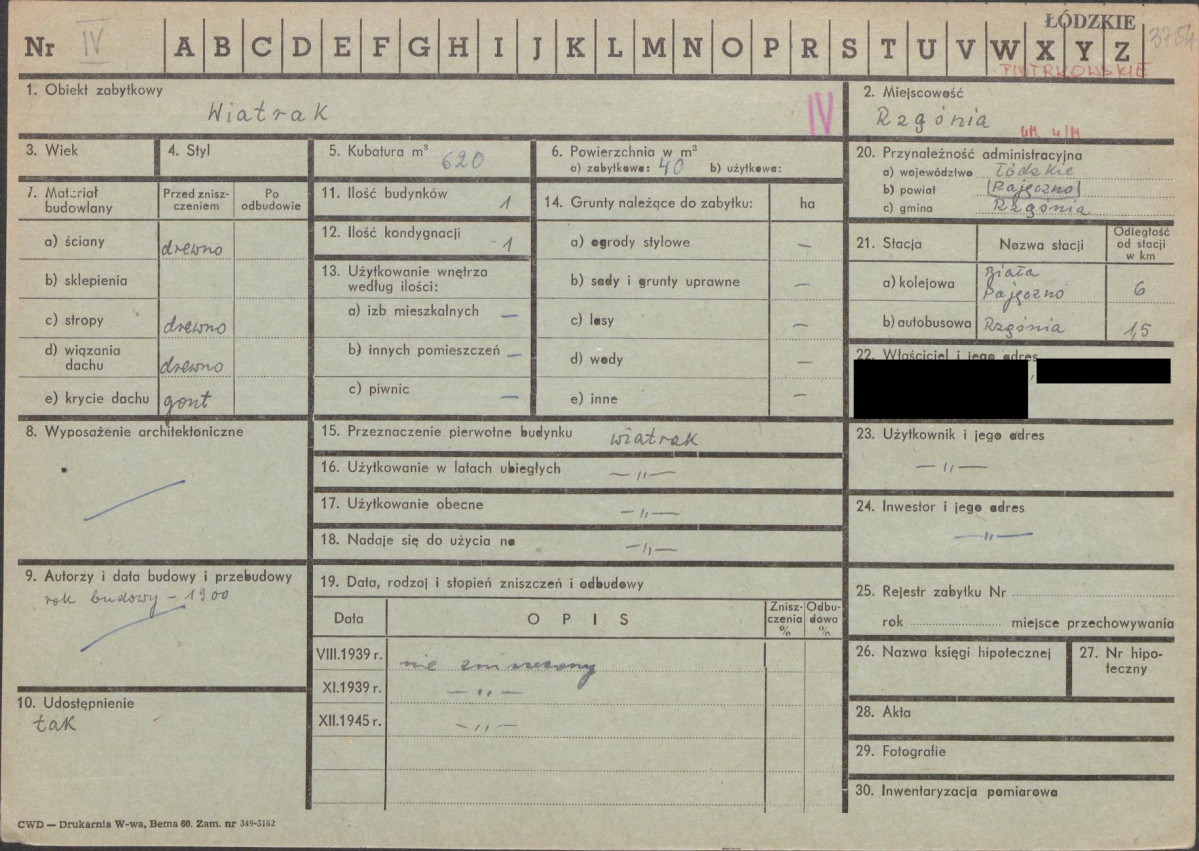 ŁÓDZKIE
Nr IV A B C D E F G H I J K L M N O P R S T U V W X Y Z 3754
PIOTRKOWSKIE
1. Obiekt zabytkowy
Wiatrak
IV
2. Miejscowość
Rzgónia
GM. u/M
3. Wiek
4. Styl
5. Kubatura m³ 620
6. Powierzchnia w m²
a) zabytkowa: 40 b) użytkowa:
7. Materiał budowlany
Przed zniszczeniem
Po odbudowie
a) ściany drewno
b) sklepienia
c) stropy drewno
d) wiązania dachu drewno
e) krycie dachu gont
8. Wyposażenie architektoniczne
9. Autorzy i data budowy i przebudowy
rok budowy – 1900
10. Udostępnienie
tak
11. Ilość budynków 1
12. Ilość kondygnacji - 1
13. Użytkowanie wnętrza według ilości:
a) izb mieszkalnych —
b) innych pomieszczeń —
c) piwnic —
14. Grunty należące do zabytku: ha
a) ogrody stylowe —
b) sady i grunty uprawne —
c) lasy —
d) wody —
e) inne —
15. Przeznaczenie pierwotne budynku wiatrak
16. Użytkowanie w latach ubiegłych —„—
17. Użytkowanie obecne —„—
18. Nadaje się do użycia na —„—
19. Data, rodzaj i stopień zniszczeń i odbudowy
Data OPIS Zniszczenia % Odbudowa %
VIII.1939 r. nie zniszczony
XI.1939 r. —„—
XII.1945 r. —„—
20. Przynależność administracyjna
a) województwo Łódzkie
b) powiat (Pajęczno)
c) gmina Rzgónia
21. Stacja Nazwa stacji Odległość od stacji w km
a) kolejowa Biała Pajęczno 6
b) autobusowa Rzgónia 1,5
22. Właściciel i jego adres
23. Użytkownik i jego adres
—„—
24. Inwestor i jego adres
—„—
25. Rejestr zabytku Nr
rok miejsce przechowywania
26. Nazwa księgi hipotecznej
27. Nr hipoteczny
28. Akta
29. Fotografie
30. Inwentaryzacja pomiarowa
CWD — Drukarnia W-wa, Bema 60. Zam. nr 349-5162